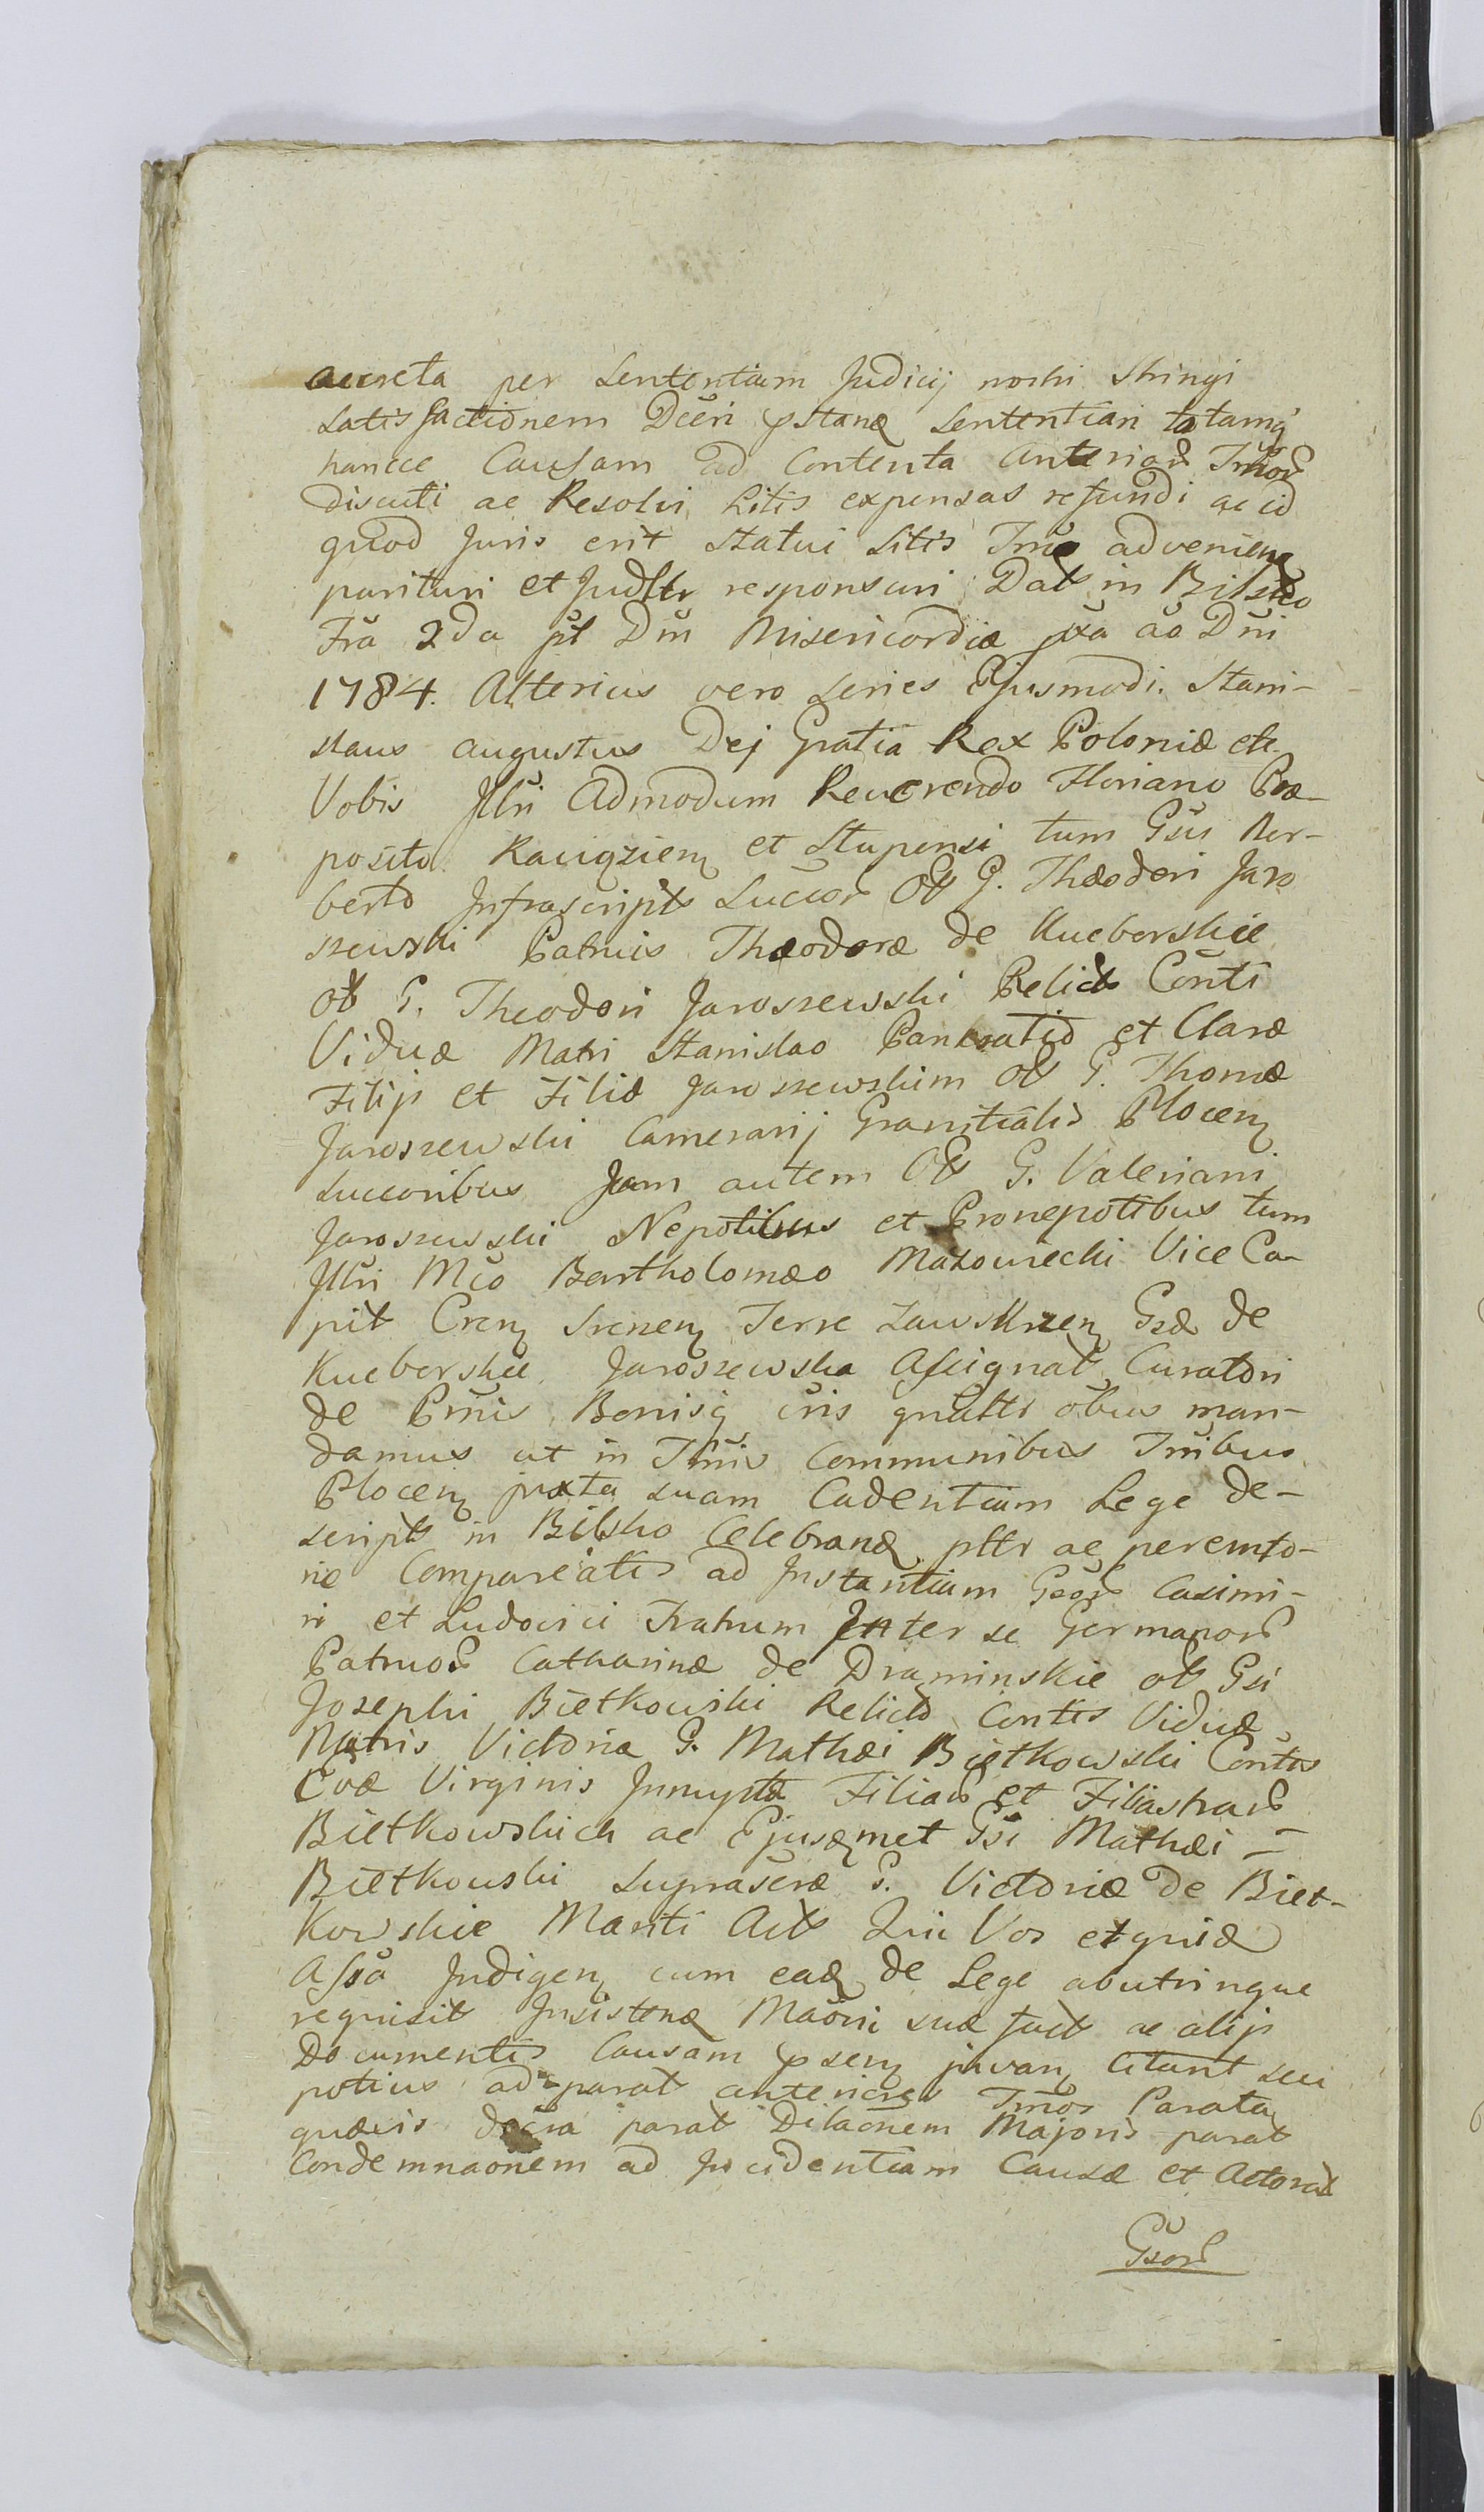 accreta per Sententiam Judicij nostri stringi
Satisfactionem Dceri pstanđ Sententiari totamq
hancce Causam ad Contenta Anterior Tmõr
discuti ac Resolvi Litis expensas refundi ac id
quod Juris erit statui Sitis Tmõ advenien
parituri et Judltr responsuri Dat in Bilsko
Fra 2da pt Dm̃ Misericordiæ pxa aõ Dñi
1784. Alterius vero Series Ejusmodi. Stani-
slaus Augustus Dej Gratia Rex Poloniæ etc.
Vobis Jllri Admodum Reverendo Floriano Præ-
posito Raciązien et Stupensi tum Gsis Nor-
berto Jnfrascript Succor Ol G. Theodori Jaro
szewski Patruis Theodoræ de Kucborskie
Ol G. Theodori Jaroszewski Relict Conti
Viduæ Matri Stanislao Pancratio et Claræ
Filijs et Filiæ Jaroszewskim Ol G. Thomæ
Jaroszewski Camerarij Granitialis Plocen
Succoribus Jam autem Ol G. Valeriani
Jaroszewski Nepotibus et Pronepotibus tum
Jllri Mco Bartholomæo Mazowiecki Vice Ca-
pit Cren Srenen Terre Zawskrzen Gsæ de
Kucborskie Jaroszewska Assignat Curatori
de Psnis Bonisq vris gnaltr obus man-
damus ut in Tmis Communibus Tribus
Plocen juxta suam Cadentiam Lege de-
script in Bilsko Celebranđ pltr ac peremto-
rie Compareatis ad Jnstantiam Gsor Casimi-
ri et Ludovici Fratrum Jnter se Germanor
Patruor Catharinæ de Draminskie ol Gsi
Josephi Bietkowski Relict Contis Viduæ
Matris Victoria G. Mathæi Bietkowski Contis
Evæ Virginis Jnnuptæ Filiar et Filiastrar
Bietkowskich ac Ejusdmet Gsi Mathæi -
Bietkowski Suprascræ G. Victoriæ de Biet-
kowskie Mariti Act Qui Vos et quid
Assa Jndigen cum ead de Lege abutrinque
requisit Jnsistenđ Maõni suæ fact ac alijs
Documentis Causam psen juvan Citant seu
potius ad parat anteriores Tmõs Parata
quævis parat Dilaõnem Majoris parat
Condemnaõnem ad Jncidentiam Causæ et Actorat
Gsor